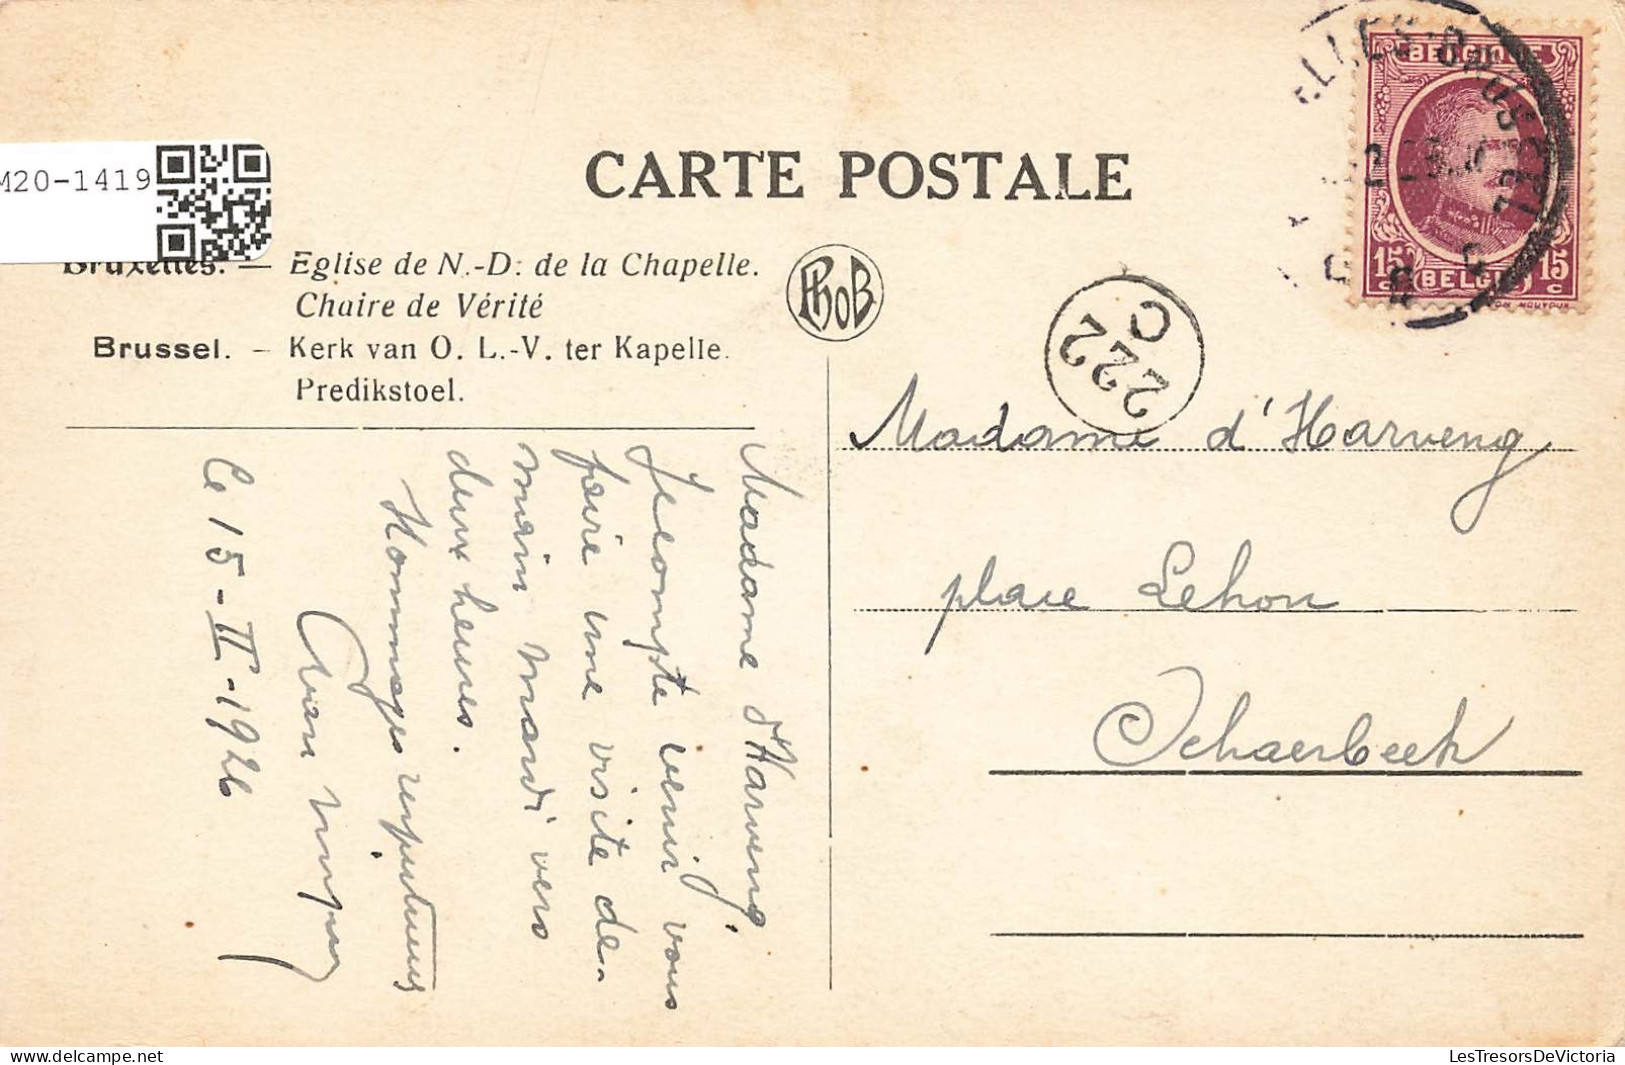 M20-1419
CARTE POSTALE
Bruxelles. — Eglise de N.-D. de la Chapelle.
Chaire de Vérité
Brussel. — Kerk van O. L.-V. ter Kapelle.
Predikstoel.
PhoB
222
C
BELGIQUE
15 15
c BELGIË c
Madame d'Harveng
place Lehon
Schaerbeek
Madame d'Harveng,
Je compte venir vous
faire une visite de-
main mardi vers
deux heures.
Hommages respectueux
Le 15-II-1926
LesTresorsDeVictoria